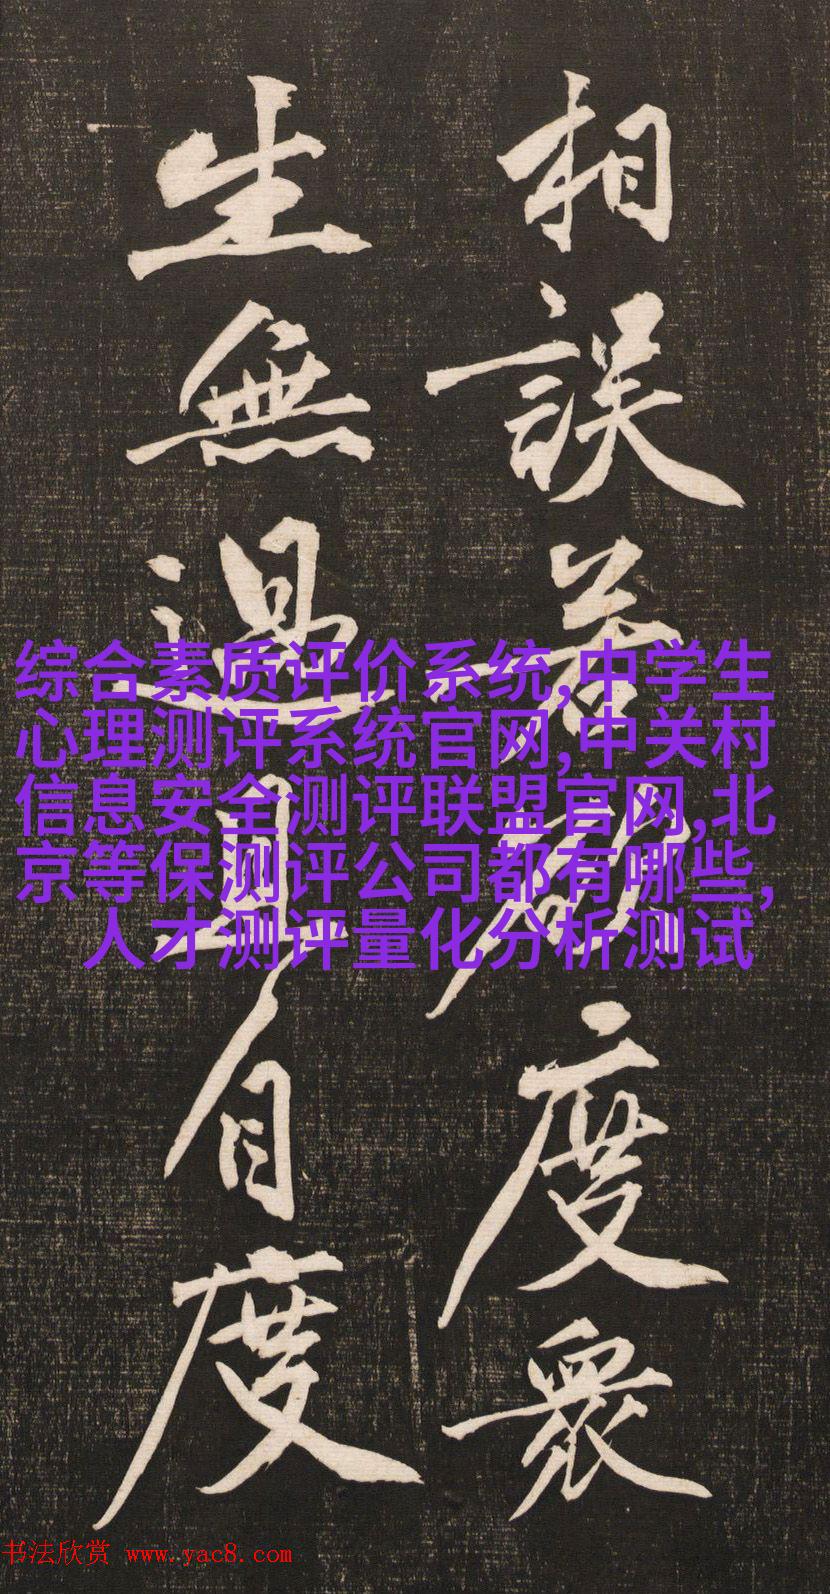 相誤若度衆
生無過且自度
综合素质评价系统,中学生
心理测评系统官网,中关村
信息安全测评联盟官网,北
京等保测评公司都有哪些,
人才测评量化分析测试
书法欣赏 www.yac8.com